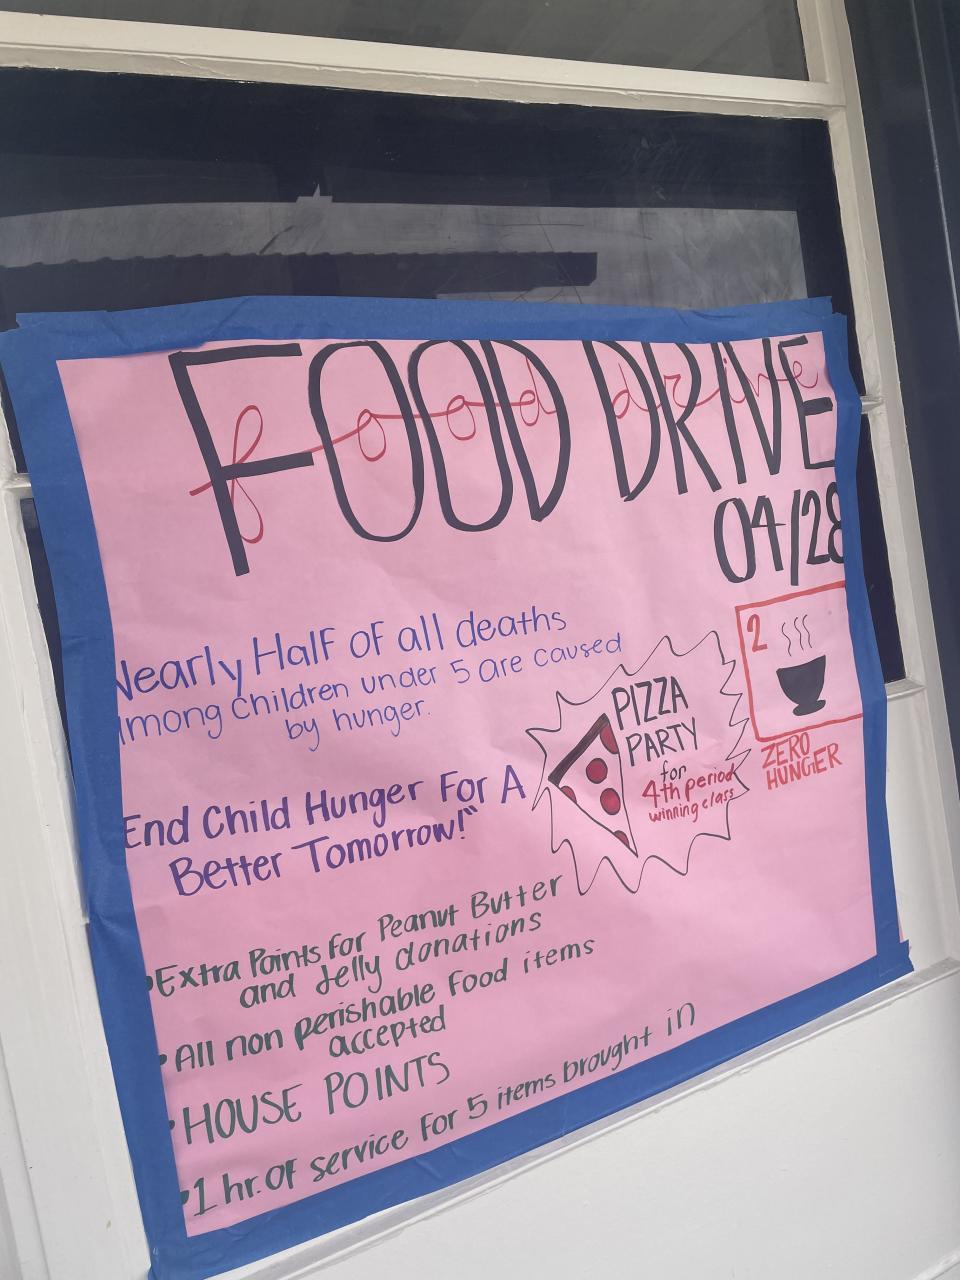 FOOD DRIVE
food drive
04/28
Nearly Half of all deaths
among children under 5 are caused
by hunger.
2
ZERO
HUNGER
PIZZA
PARTY
for
4th period
winning class
End Child Hunger For A
Better Tomorrow!"
•Extra Points for Peanut Butter
and Jelly donations
•All non perishable food items
accepted
•HOUSE POINTS
•1 hr. OF service for 5 items brought in